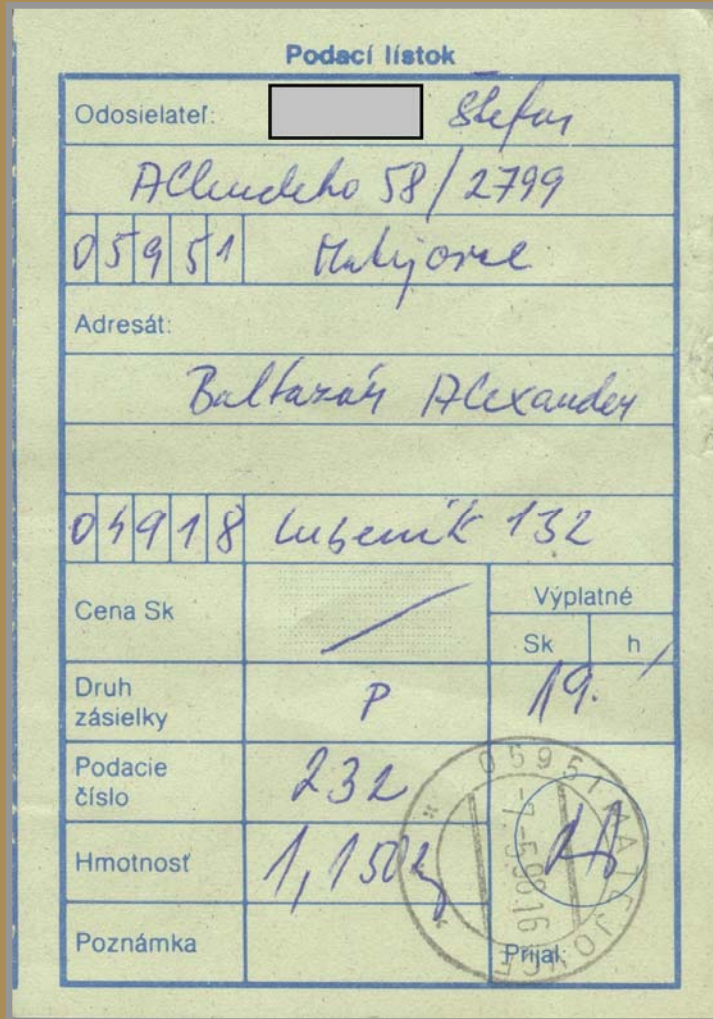 Podací lístok
Odosielateľ: Štefan
Allendeho 58/2799
05951 Matejovce
Adresát:
Baltazár Alexander
04918 Lubeník 132
Cena Sk
Výplatné
Sk h
Druh zásielky P 19.
Podacie číslo 232
Hmotnosť 1,150kg
Poznámka
Prijal:
059 51 MATEJOVCE
-7.-5.98.16